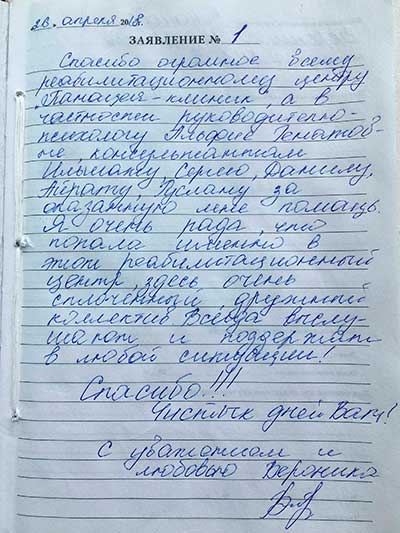 26. апреля 2018г.
ЗАЯВЛЕНИЕ № 1
Спасибо огромное всему
реабилитационному центру
"Панацея-клиник", а в
частности руководителю-
психологу Альфие
не, консультантам
Ильшату, Сергею, Данилу,
Айрату, Руслану за
оказанную мне помощь.
Я очень рада, что
попала именно в
этот реабилитационный
центр, здесь очень
сплочённый, дружный
коллектив. Всегда выслу-
шают и поддержат
в любой ситуации!
Спасибо!!!
Чистых дней Вам!
С уважением и
любовью Вероника